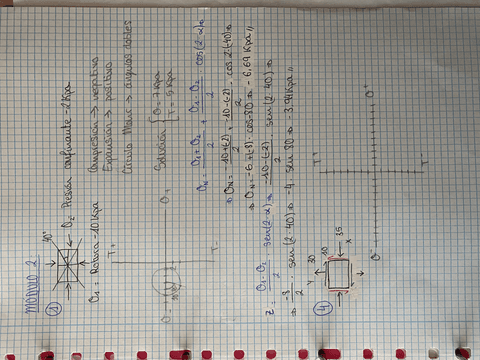 MODULO 2
① 40°
σ2 Presión confinante -2 Kpa
σ1 = Rotura -10 Kpa
Compresión → negativo
Expansión → positivo
Círculo Mohr → ángulos dobles
Solución { σ = 7 Kpa
T = 5 Kpa
T+
σ-
σ+
T-
σN = σ1 + σ2 / 2 + σ1 - σ2 / 2 · cos(2·α) ⇒
⇒ σN = -10+(-2) / 2 + -10-(-2) / 2 · cos 2·(40) ⇒
⇒ σN = -6 + (-4) · cos 80 ⇒ -6,69 Kpa //
τ = σ1 - σ2 / 2 · sen(2·α) ⇒ -10-(-2) / 2 · sen(2·40) ⇒
⇒ -8 / 2 · sen(2·40) ⇒ -4 · sen 80 ⇒ -3,94 Kpa //
④
Y 30
10
35
X
T+
σ-
σ+
T-